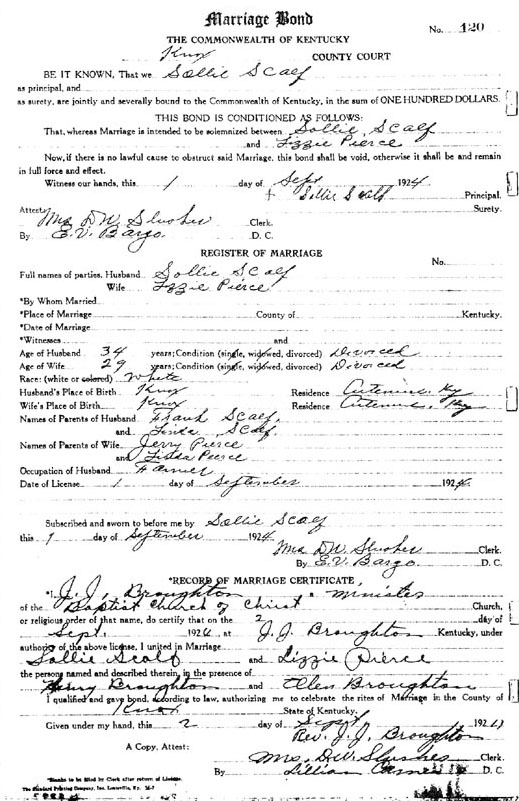 Marriage Bond
No. 120
THE COMMONWEALTH OF KENTUCKY
Knox COUNTY COURT
BE IT KNOWN, That we Sollie Scalf
as principal, and
as surety, are jointly and severally bound to the Commonwealth of Kentucky, in the sum of ONE HUNDRED DOLLARS.
THIS BOND IS CONDITIONED AS FOLLOWS:
That, whereas Marriage is intended to be solemnized between Sollie Scalf
and Lizzie Pierce
Now, if there is no lawful cause to obstruct said Marriage, this bond shall be void, otherwise it shall be and remain
in full force and effect.
Witness our hands, this 1 day of Sept 1924
Sollie Scalf Principal.
Surety.
Attest: Mrs D W Slusher Clerk.
By E. V. Bargo. D. C.
REGISTER OF MARRIAGE
No.
Full names of parties, Husband Sollie Scalf
Wife Lizzie Pierce
*By Whom Married
*Place of Marriage County of Kentucky.
*Date of Marriage
*Witnesses and
Age of Husband 34 years; Condition (single, widowed, divorced) Divorced
Age of Wife 29 years; Condition (single, widowed, divorced) Divorced
Race: (white or colored) White
Husband's Place of Birth Knox Residence Artemus, Ky
Wife's Place of Birth Knox Residence Artemus, Ky
Names of Parents of Husband Frank Scalf,
and Linda Scalf.
Names of Parents of Wife Jerry Pierce
and Pierce
Occupation of Husband Farmer
Date of License 1 day of September 1924.
Subscribed and sworn to before me by Sollie Scalf
this 1 day of September 1924
Mrs D W Slusher Clerk.
By E. V. Bargo D. C.
*RECORD OF MARRIAGE CERTIFICATE,
*I, J. J. Broughton a Minister
of the Baptist Church of Christ Church,
or religious order of that name, do certify that on the 2 day of
Sept. 1924 at J. J. Broughton Kentucky, under
authority of the above license, I united in Marriage
Sollie Scalf and Lizzie Pierce
the persons named and described therein, in the presence of
Henry Broughton and Ellen Broughton
I qualified and gave bond, according to law, authorizing me to celebrate the rites of Marriage in the County of
Knox State of Kentucky.
Given under my hand, this 2 day of Sept 192
Rev. J. J. Broughton
A Copy, Attest: Mrs. D. W. Slusher Clerk.
By Lillian D. C.
*Blanks to be filed by Clerk after return of License.
The Standard Printing Company, Inc. Louisville, Ky.